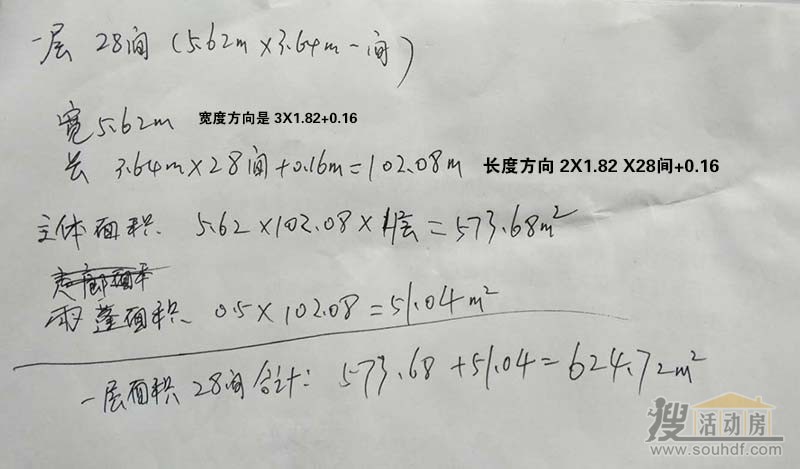 一层 28间 (5.62m×3.64m一间)
宽 5.62m 宽度方向是 3X1.82+0.16
长 3.64m×28间+0.16m=102.08m 长度方向 2X1.82 X28间+0.16
主体面积. 5.62×102.08×1层=573.68m²
走廊面积
雨蓬面积. 0.5×102.08=51.04m²
一层面积 28间合计: 573.68+51.04=624.72m²
搜活动房
www.souhdf.com